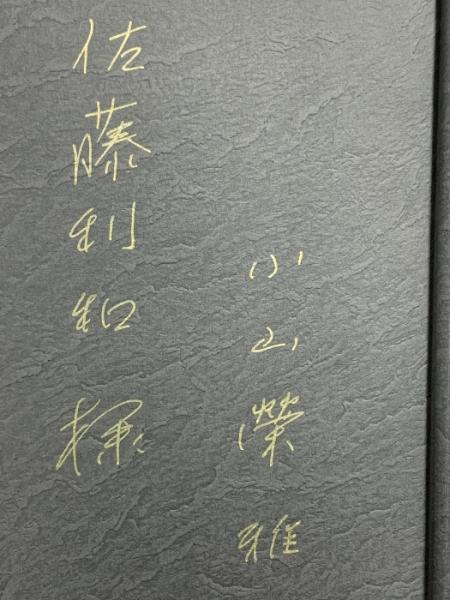 小山榮雅
佐藤利和様